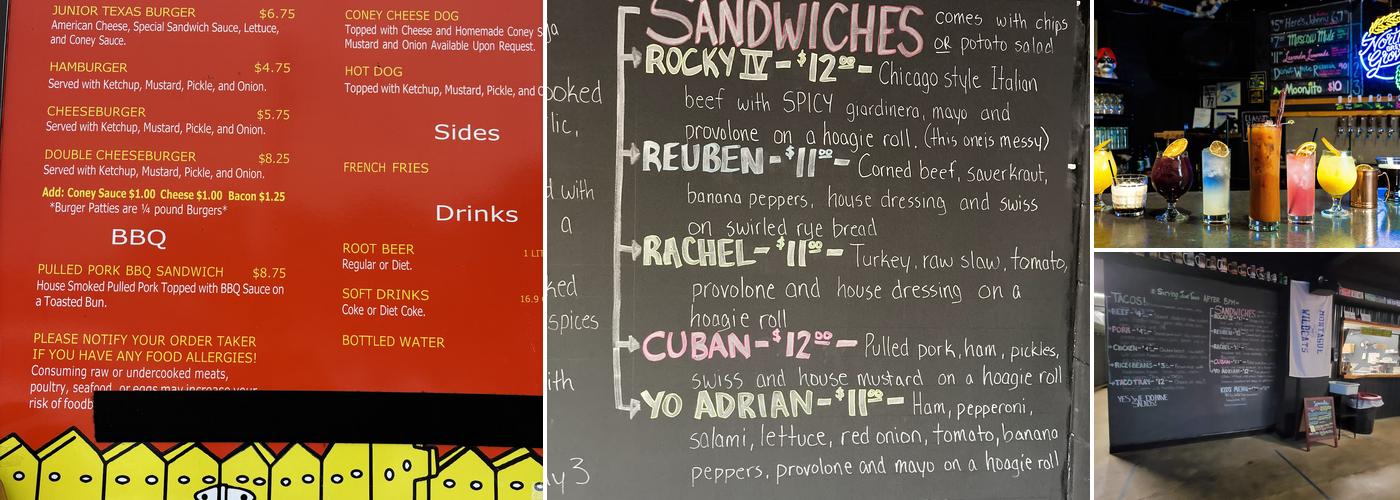 JUNIOR TEXAS BURGER $6.75
American Cheese, Special Sandwich Sauce, Lettuce,
and Coney Sauce.
HAMBURGER $4.75
Served with Ketchup, Mustard, Pickle, and Onion.
CHEESEBURGER $5.75
Served with Ketchup, Mustard, Pickle, and Onion.
DOUBLE CHEESEBURGER $8.25
Served with Ketchup, Mustard, Pickle, and Onion.
Add: Coney Sauce $1.00 Cheese $1.00 Bacon $1.25
*Burger Patties are ¼ pound Burgers*
BBQ
PULLED PORK BBQ SANDWICH $8.75
House Smoked Pulled Pork Topped with BBQ Sauce on
a Toasted Bun.
PLEASE NOTIFY YOUR ORDER TAKER
IF YOU HAVE ANY FOOD ALLERGIES!
Consuming raw or undercooked meats,
poultry, seafood, or eggs may increase your
risk of foodb
CONEY CHEESE DOG
Topped with Cheese and Homemade Coney S
Mustard and Onion Available Upon Request.
HOT DOG
Topped with Ketchup, Mustard, Pickle, and O
Sides
FRENCH FRIES
Drinks
ROOT BEER 1 LIT
Regular or Diet.
SOFT DRINKS 16.9
Coke or Diet Coke.
BOTTLED WATER
ooked
lic,
d with
a
ked
spices
ith
y 3
SANDWICHES comes with chips
OR potato salad
ROCKY IV - $12.00 - Chicago style Italian
beef with SPICY giardinera, mayo and
provolone on a hoagie roll. (this one is messy)
REUBEN - $11.00 - Corned beef, sauerkraut,
banana peppers, house dressing and swiss
on swirled rye bread
RACHEL - $11.00 - Turkey, raw slaw, tomato,
provolone and house dressing on a
hoagie roll
CUBAN - $12.00 - Pulled pork, ham, pickles,
swiss and house mustard on a hoagie roll
YO ADRIAN - $11.00 - Ham, pepperoni,
salami, lettuce, red onion, tomato, banana
peppers, provolone and mayo on a hoagie roll
Here's Johnny
$7 Moscow Mule
$11 Lavender Lemonade
White Russian
Moonjito $10
North
Grove
TACOS! * Serving Just Tacos AFTER 8PM *
BEEF
PORK
CHICKEN
RICE & BEANS
TACO TRAY
YES WE DO NINE
SANDWICHES
ROCKY IV
REUBEN
RACHEL
CUBAN
YO ADRIAN
KIDS MENU
MONTAGUE
WILDCATS